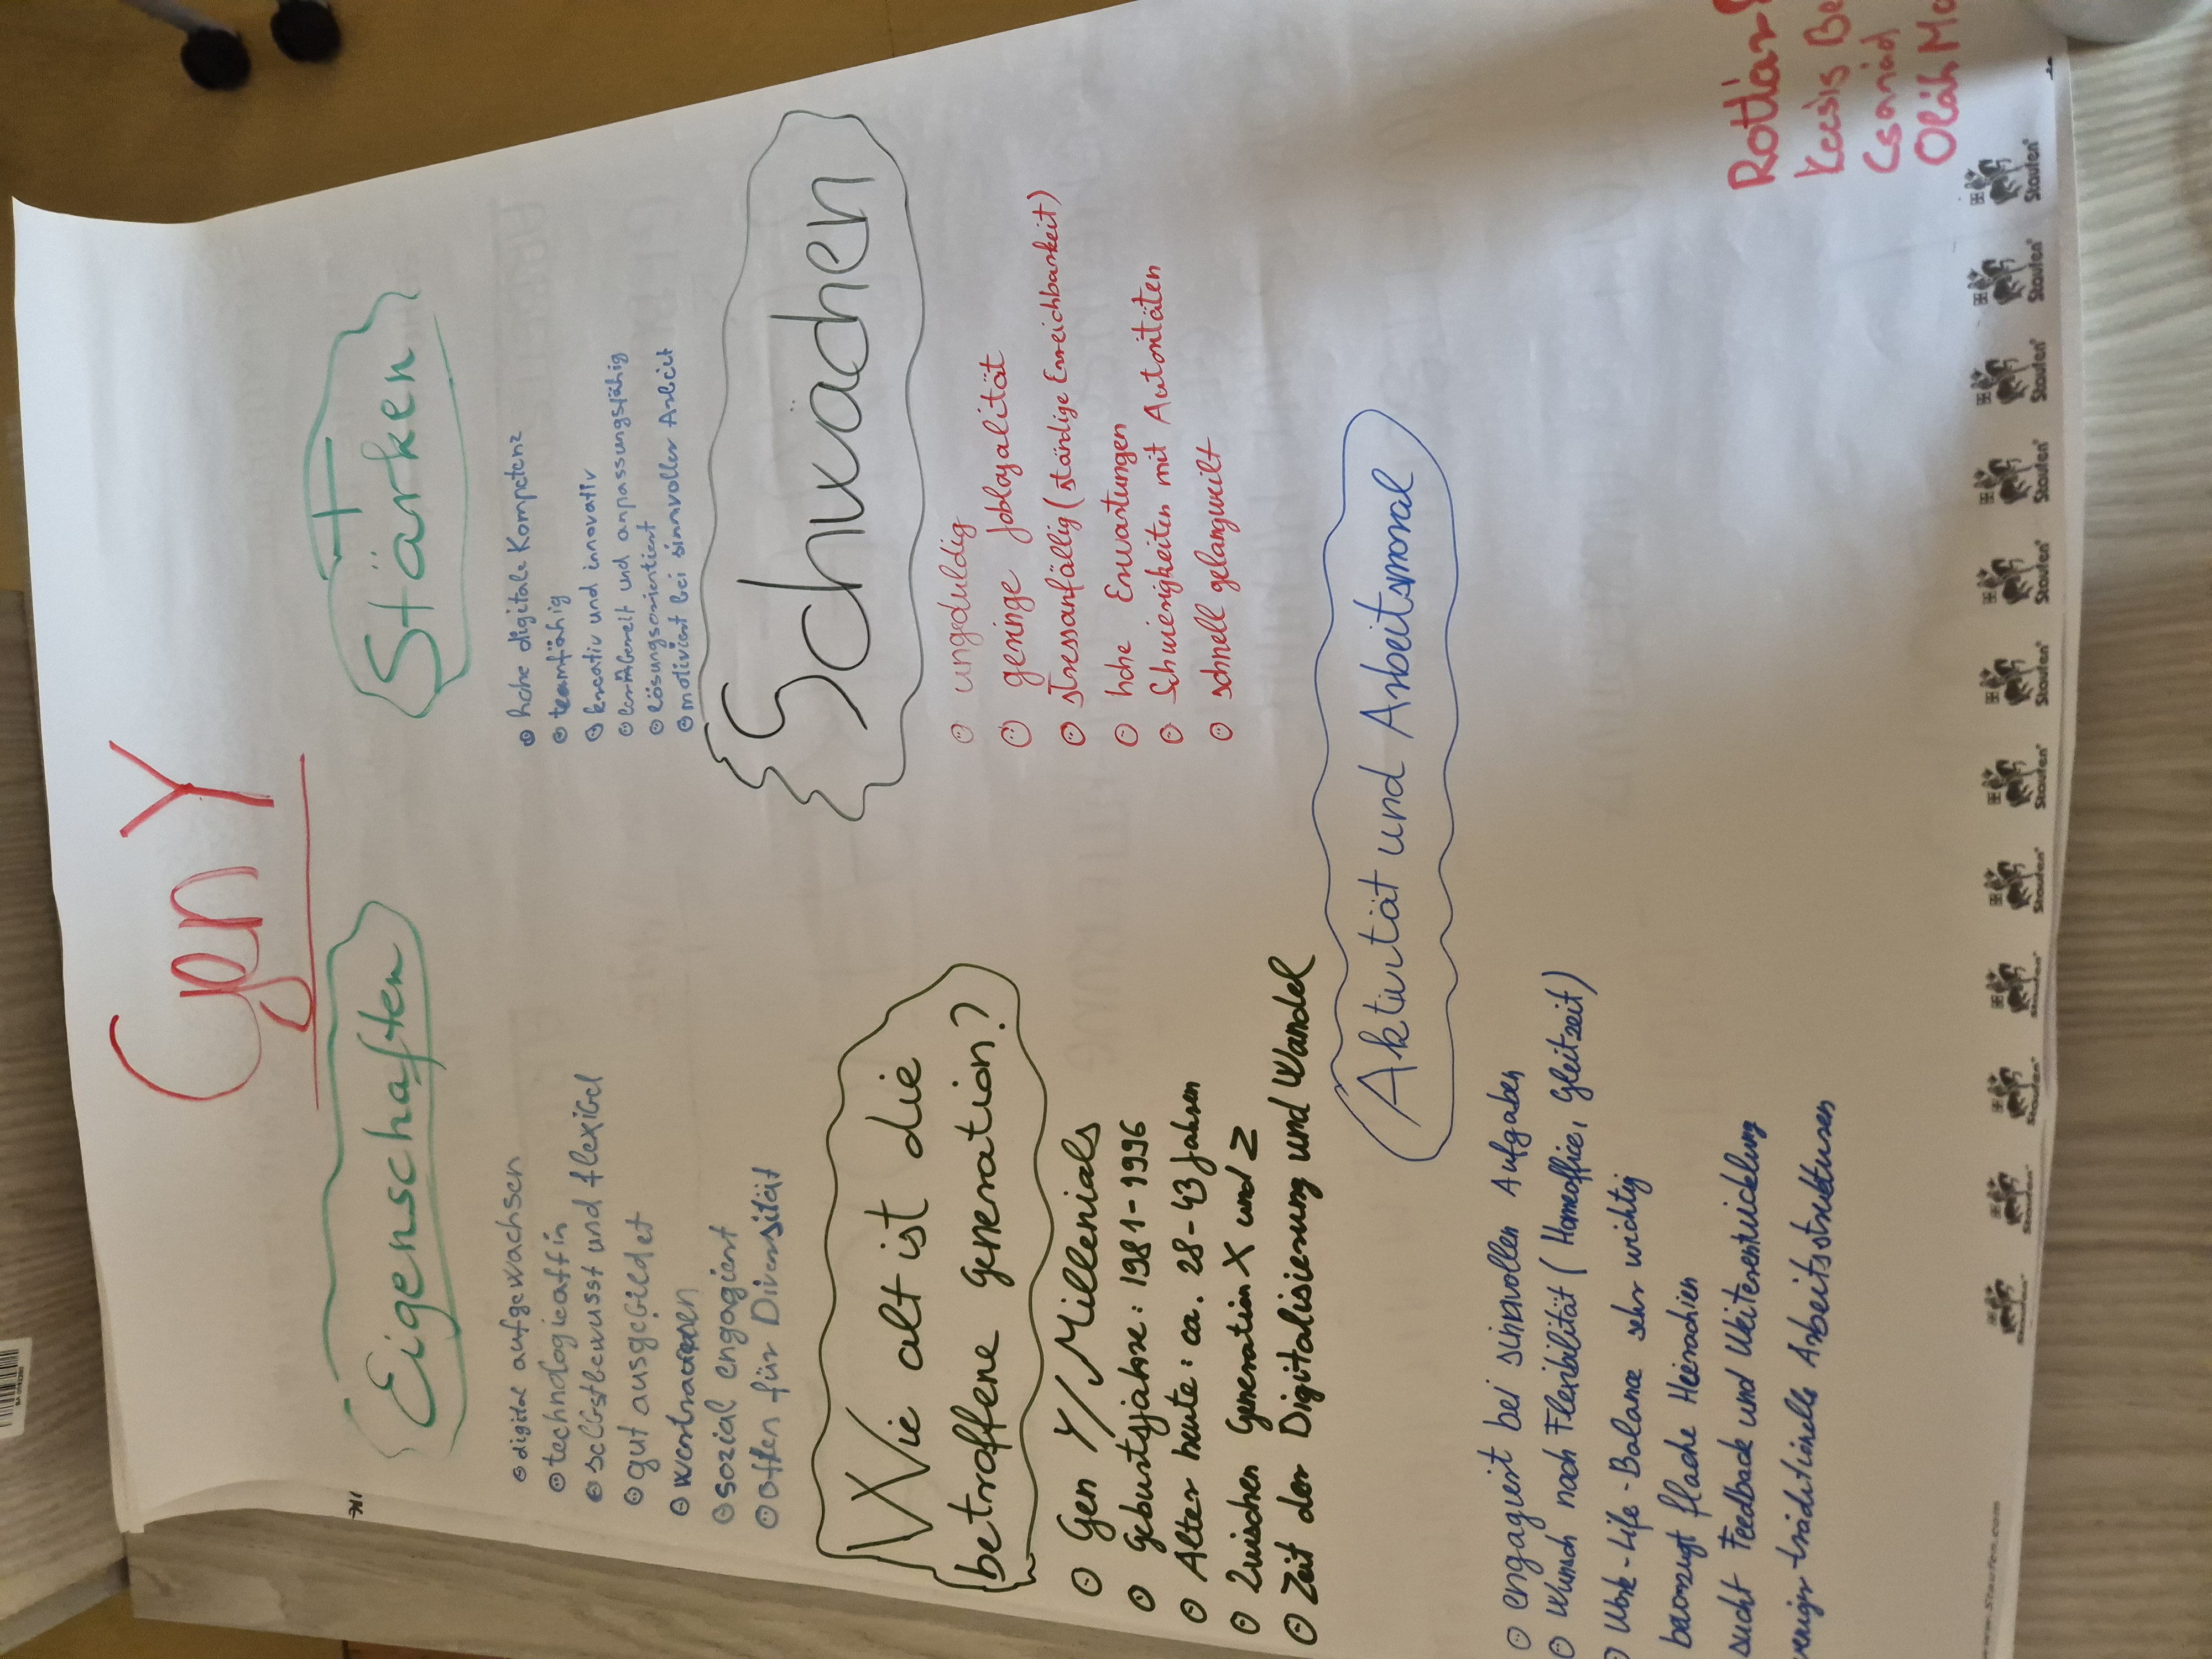 Gen Y
Eigenschaften
digital aufgewachsen
technologieaffin
selbstbewusst und flexibel
gut ausgebildet
sozial engagiert
offen für Diversität
Stärken
hohe digitale Kompetenz
teamfähig
kreativ und innovativ
lernbereit und anpassungsfähig
lösungsorientiert
motiviert bei sinnvoller Arbeit
Wie alt ist die
betroffene Generation?
Gen Y/Millenials
Geburtsjahre: 1981-1996
Alter heute: ca. 28-43 Jahren
Zwischen Generation X und Z
Zeit der Digitalisierung und Wandel
Schwächen
ungeduldig
geringe Jobloyalität
stressanfällig (ständige Erreichbarkeit)
hohe Erwartungen
Schwierigkeiten mit Autoritäten
schnell gelangweilt
Aktivität und Arbeitsmoral
engagiert bei sinnvollen Aufgaben
Wunsch nach Flexibilität (Homeoffice, Gleitzeit)
Work-Life-Balance sehr wichtig
bevorzugt flache Hierachien
sucht Feedback und Weiterentwicklung
weniger traditionelle Arbeitsstrukturen
Csanád
Oláh
www.Staufen.com
Staufen
Staufen
Staufen
Staufen
Staufen
Staufen
Staufen
Staufen
Staufen
Staufen
Staufen
Staufen